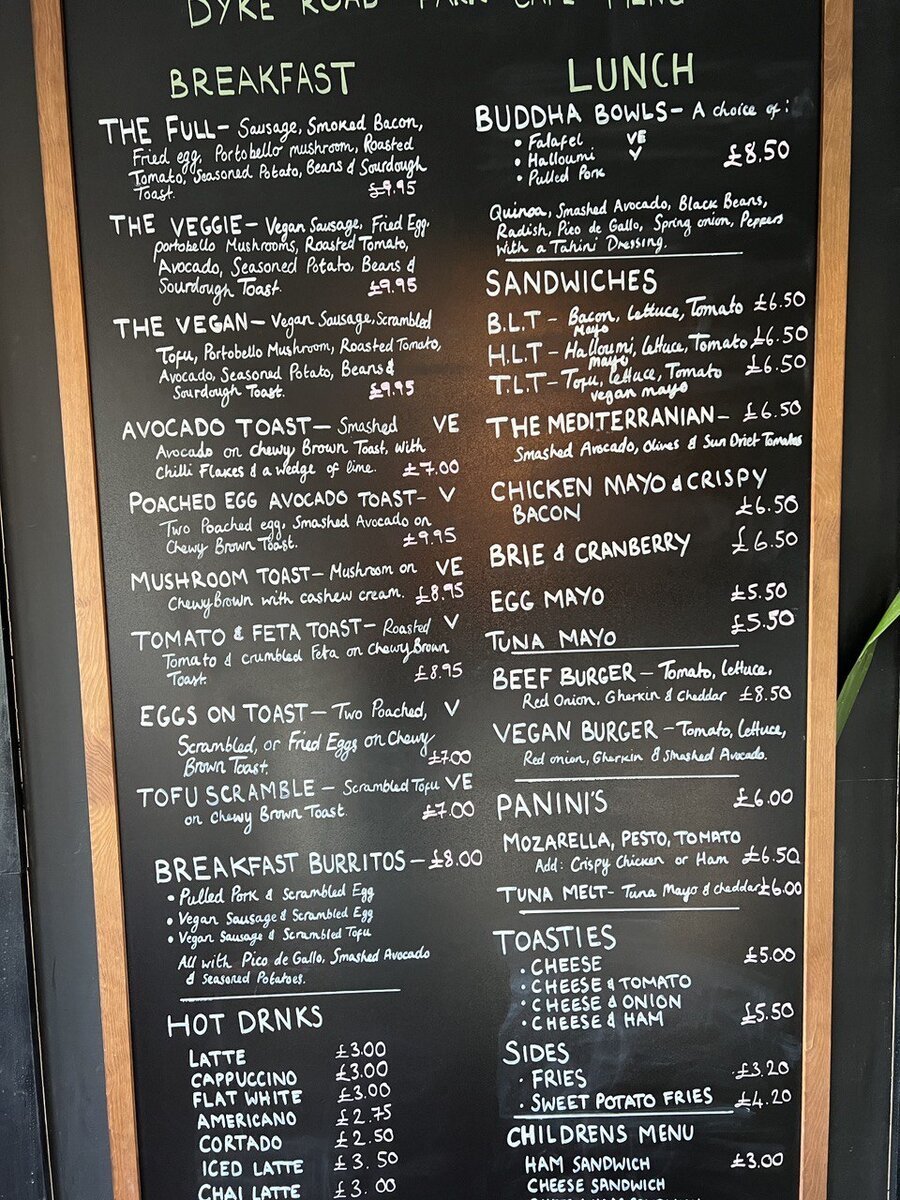 DYKE ROAD PARK CAFE MENU
BREAKFAST
THE FULL- Sausage, Smoked Bacon,
Fried egg, Portobello mushroom, Roasted
Tomato, Seasoned Potato, Beans & Sourdough
Toast. £9.95
THE VEGGIE- Vegan Sausage, Fried Egg,
portobello Mushrooms, Roasted Tomato,
Avocado, Seasoned Potato, Beans &
Sourdough Toast. £9.95
THE VEGAN- Vegan Sausage, Scrambled
Tofu, Portobello Mushroom, Roasted Tomato,
Avocado, Seasoned Potato, Beans &
Sourdough Toast. £9.95
AVOCADO TOAST- Smashed VE
Avocado on chewy Brown Toast, with
Chilli Flakes & a wedge of lime. £7.00
POACHED EGG AVOCADO TOAST- V
Two Poached egg, Smashed Avocado on
Chewy Brown Toast. £9.95
MUSHROOM TOAST- Mushroom on VE
Chewy Brown with cashew cream. £8.95
TOMATO & FETA TOAST- Roasted V
Tomato & crumbled Feta on Chewy Brown
Toast. £8.95
EGGS ON TOAST- Two Poached, V
Scrambled, or Fried Eggs on Chewy
Brown Toast. £7.00
TOFU SCRAMBLE- Scrambled Tofu VE
on Chewy Brown Toast. £7.00
BREAKFAST BURRITOS- £8.00
• Pulled Pork & Scrambled Egg
• Vegan Sausage & Scrambled Egg
• Vegan Sausage & Scrambled Tofu
All with Pico de Gallo, Smashed Avocado
& Seasoned Potatoes.
HOT DRNKS
LATTE £3.00
CAPPUCCINO £3.00
FLAT WHITE £3.00
AMERICANO £2.75
CORTADO £2.50
ICED LATTE £3.50
CHAI LATTE £3.00
LUNCH
BUDDHA BOWLS- A choice of:
• Falafel VE
• Halloumi V £8.50
• Pulled Pork
Quinoa, Smashed Avocado, Black Beans,
Radish, Pico de Gallo, Spring onion, Peppers
with a Tahini Dressing.
SANDWICHES
B.L.T - Bacon, lettuce, Tomato £6.50
Mayo
H.L.T- Halloumi, lettuce, Tomato £6.50
mayo
T.L.T- Tofu, lettuce, Tomato £6.50
vegan mayo
THE MEDITERRANIAN- £6.50
Smashed Avocado, Olives & Sun Driet Tomatoes
CHICKEN MAYO & CRISPY
BACON £6.50
BRIE & CRANBERRY £6.50
EGG MAYO £5.50
TUNA MAYO £5.50
BEEF BURGER- Tomato, lettuce,
Red Onion, Gherkin & Cheddar £8.50
VEGAN BURGER- Tomato, Lettuce,
Red onion, Gherkin & Smashed Avocado.
PANINI'S £6.00
MOZARELLA, PESTO, TOMATO
Add: Crispy Chicken or Ham £6.50
TUNA MELT- Tuna Mayo & cheddar £6.00
TOASTIES
• CHEESE £5.00
• CHEESE & TOMATO
• CHEESE & ONION
• CHEESE & HAM £5.50
SIDES
• FRIES £3.20
• SWEET POTATO FRIES £4.20
CHILDRENS MENU
HAM SANDWICH £3.00
CHEESE SANDWICH